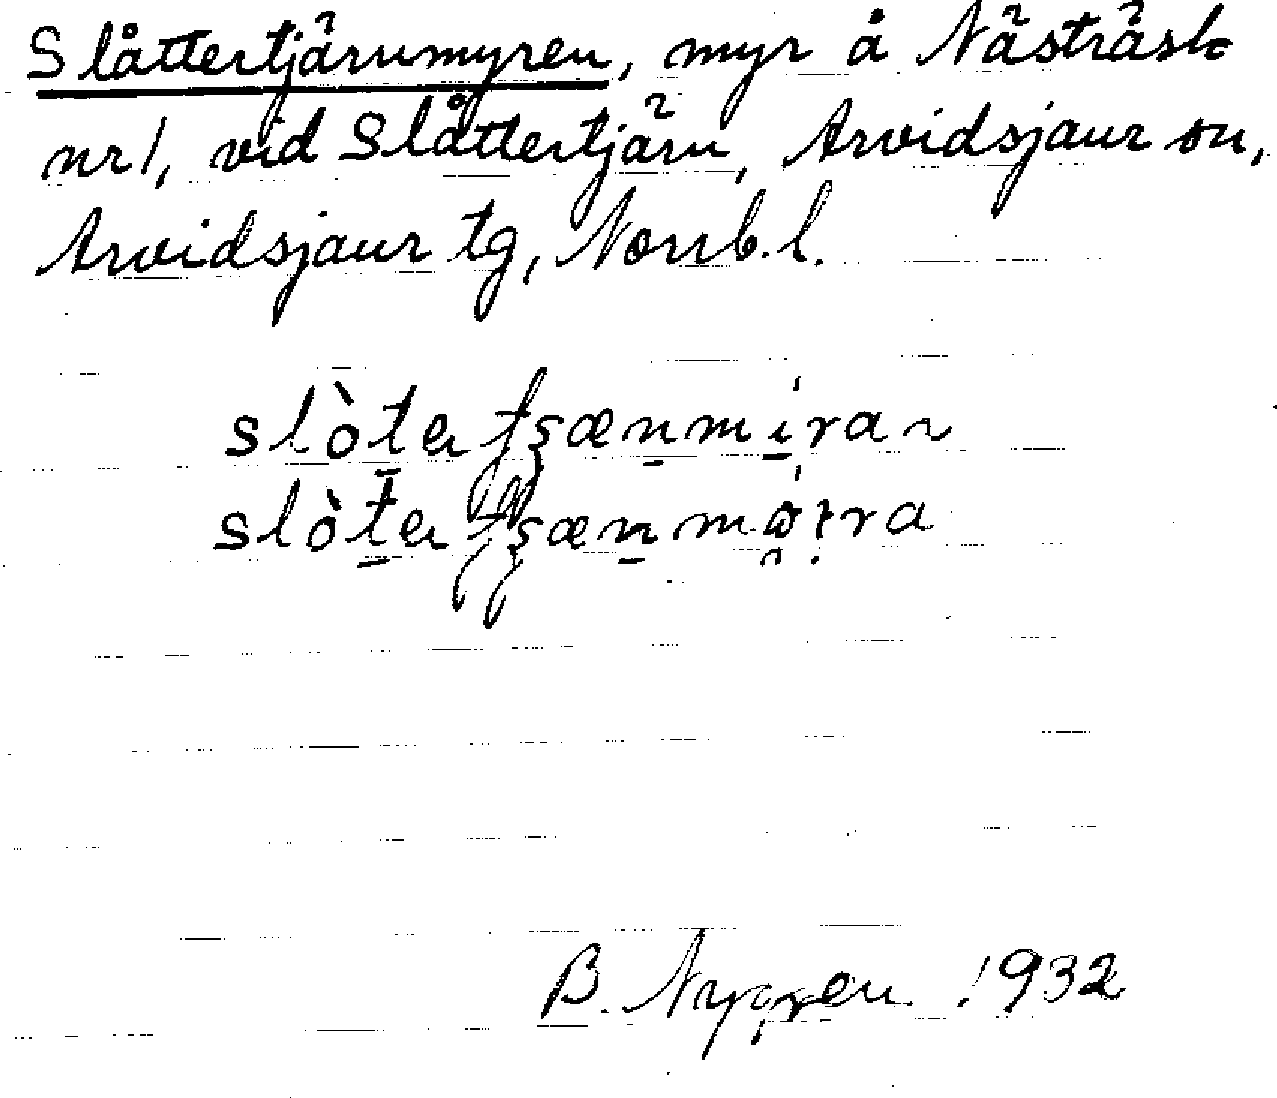 Slåttertjärnmyren, myr å Nästräsk
nr 1, vid Slåttertjärn, Arvidsjaur sn,
Arvidsjaur tg, Norrb. l.
slòt̠eɹ tʂæn̠mi̠ran
slòt̠eɹ tʂæn̠mö̯i̭ra
B. Nygren 1932